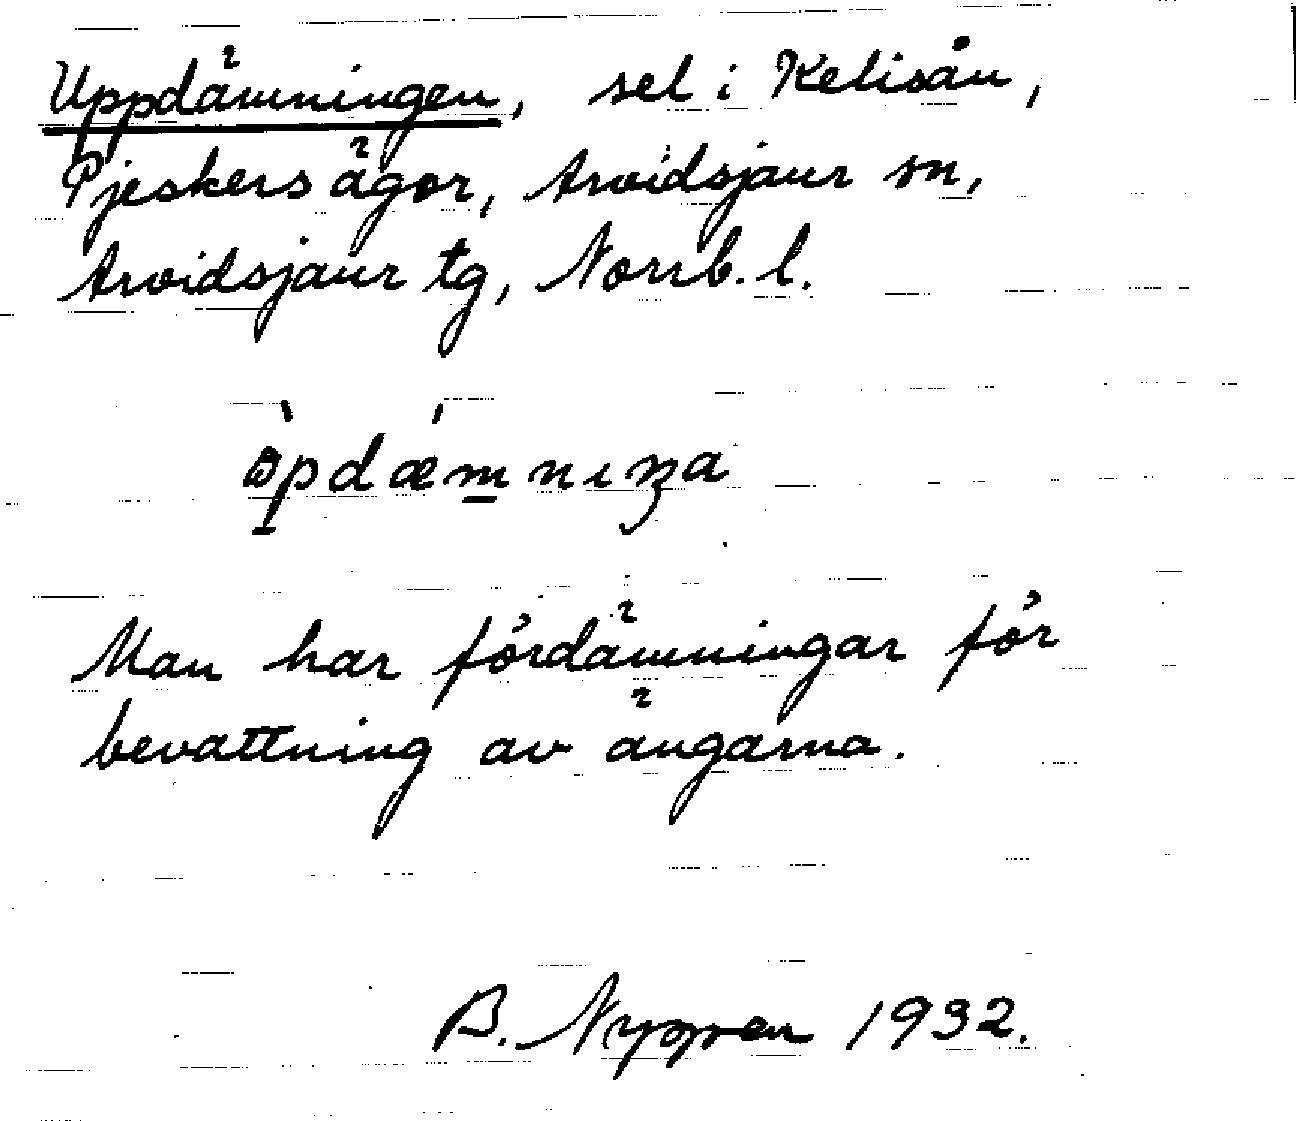 Uppdämningen, sel i Kelisån,
Pjeskers ägor, Arvidsjaur sn,
Arvidsjaur tg, Norrb. l.
Man har fördämningar för
bevattning av ängarna.
B. Nyppen 1932.